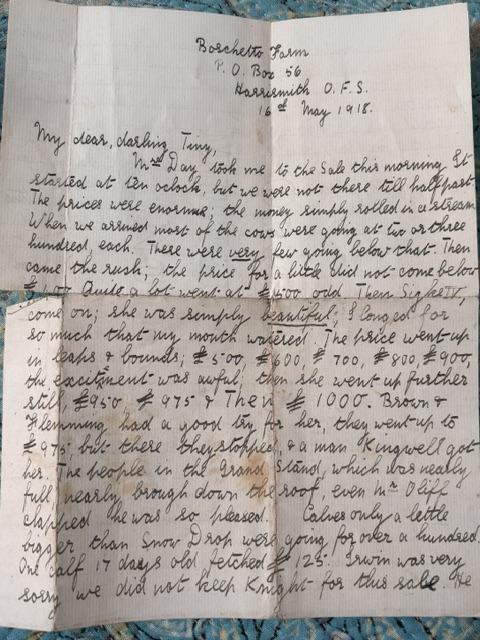 Boschetto Farm
P. O. Box 56
Harrismith O. F. S.
16th May 1918.
My dear, darling Tiny,
Mrs Day took me to the Sale this morning. It
started at ten oclock, but we were not there till half past.
The prices were enormous; the money simply rolled in a stream
When we arrived most of the cows were going at two or three
hundred, each. There were very few going below that. Then
came the rush; the price for a little did not come below
£400 Quite a lot went at £500 odd. Then
come on; she was simply beautiful; I longed for
so much that my mouth watered. The price went up
in leaps & bounds; £500, £600, £700, £800, £900,
the excitment was awful; then she went up further
still, £950 £975 & Then £1000. Brown &
Flemming, had a good try for her, they went up to
£975 but there they stopped, & a man Kingwell got
her. The people in the Grand Stand, which was nearly
full, nearly brough down the roof, even Mr Oliff
clapped he was so pleased. Calves only a little
bigger than Snow Drop were going for over a hundred
One calf 17 days old fetched £125. Irwin was very
sorry we did not keep Knight for this sale. He